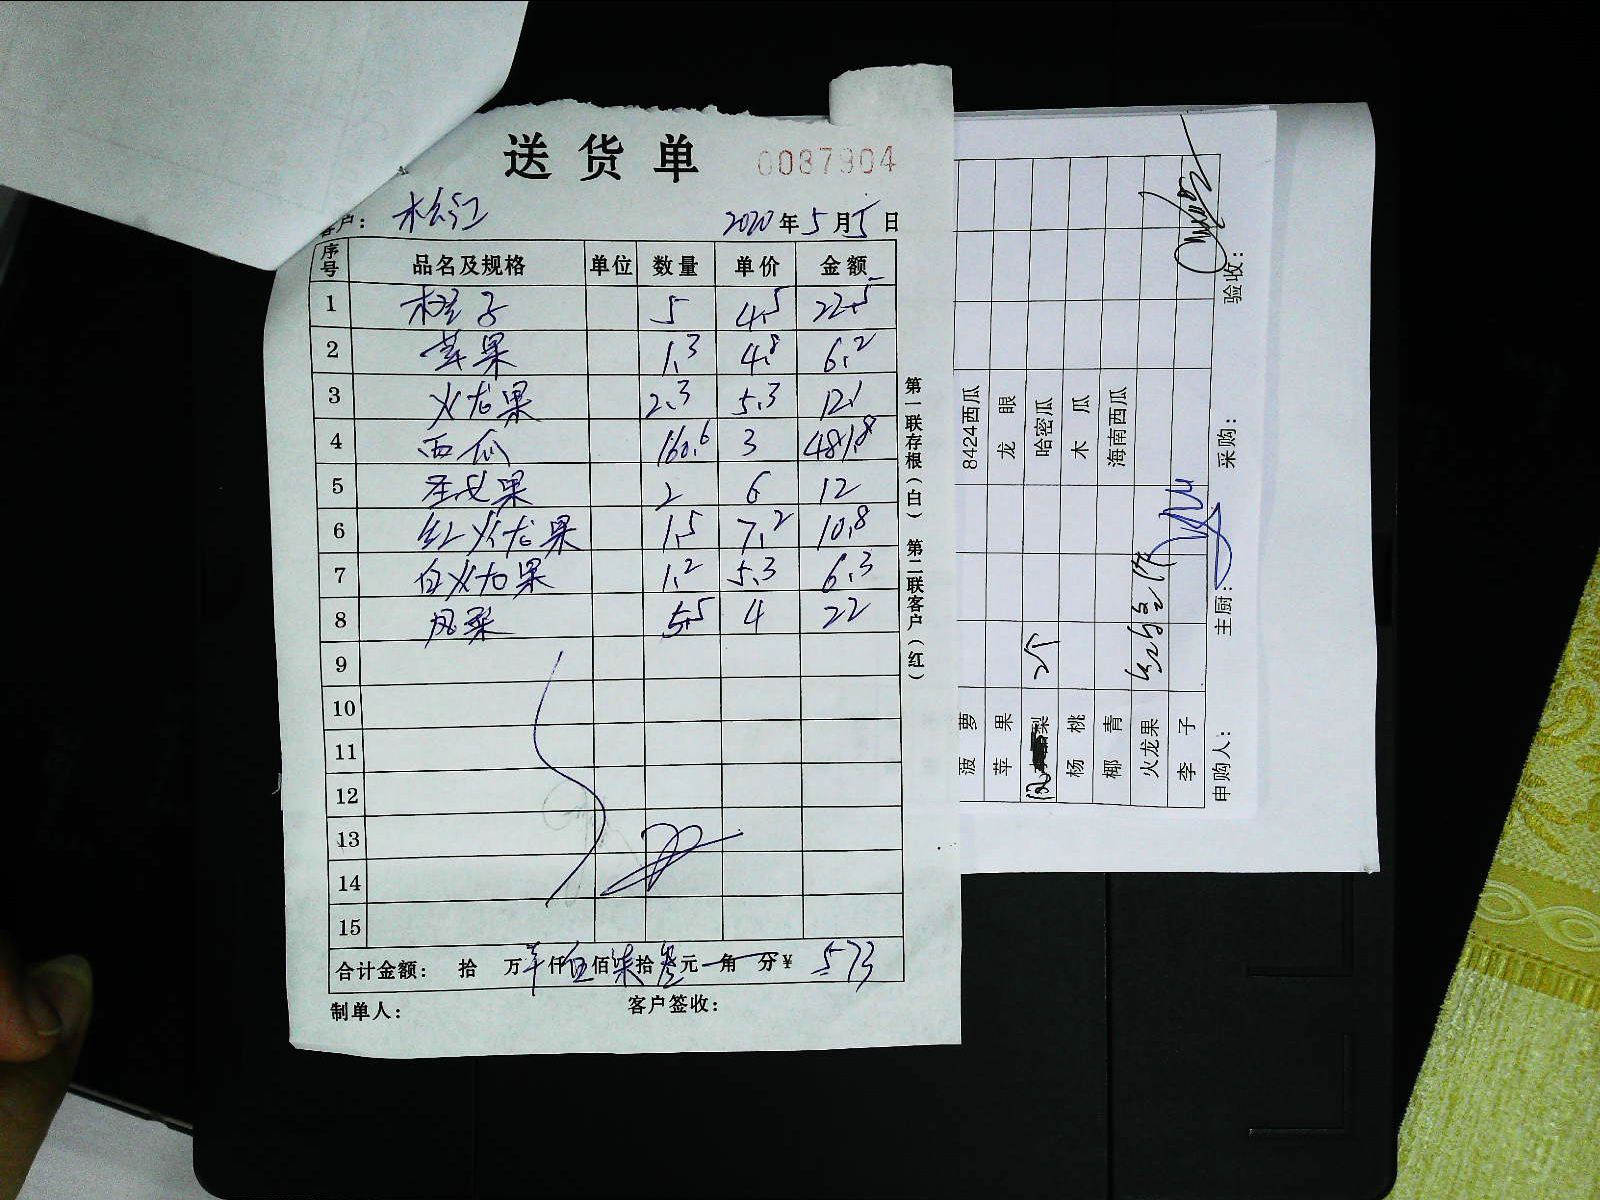 送货单 0087904
客户: 松江 2020年5月5日
序号 品名及规格 单位 数量 单价 金额
1 橙子 5 4.5 22.5
2 苹果 1.3 4.8 6.2
3 火龙果 2.3 5.3 12.1
4 西瓜 160.6 3 481.8
5 圣女果 2 6 12
6 红火龙果 1.5 7.2 10.8
7 白火龙果 1.2 5.3 6.3
8 凤梨 5.5 4 22
9
10
11
12
13
14
15
合计金额: 拾 万 仟 伍 佰 柒 拾 叁 元 角 分 ¥ 573
制单人: 客户签收:
第一联存根(白) 第二联客户(红)
菠萝 8424西瓜
苹果 龙眼
梨 2个 哈密瓜
杨桃 木瓜
椰青 海南西瓜
火龙果
李子
申购人: 主厨: 采购: 验收: